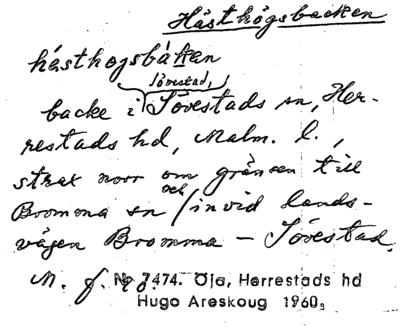 Hästhögsbacken
hästhogsbákan
Sövestad,
backe i Sövestads sn, Her-
restads hd, Malm. l.,
strax norr om gränsen till
Bromma sn och invid lands-
vägen Bromma – Sövestad.
M. f. No 7474. Öja, Herrestads hd
Hugo Areskoug 1960.